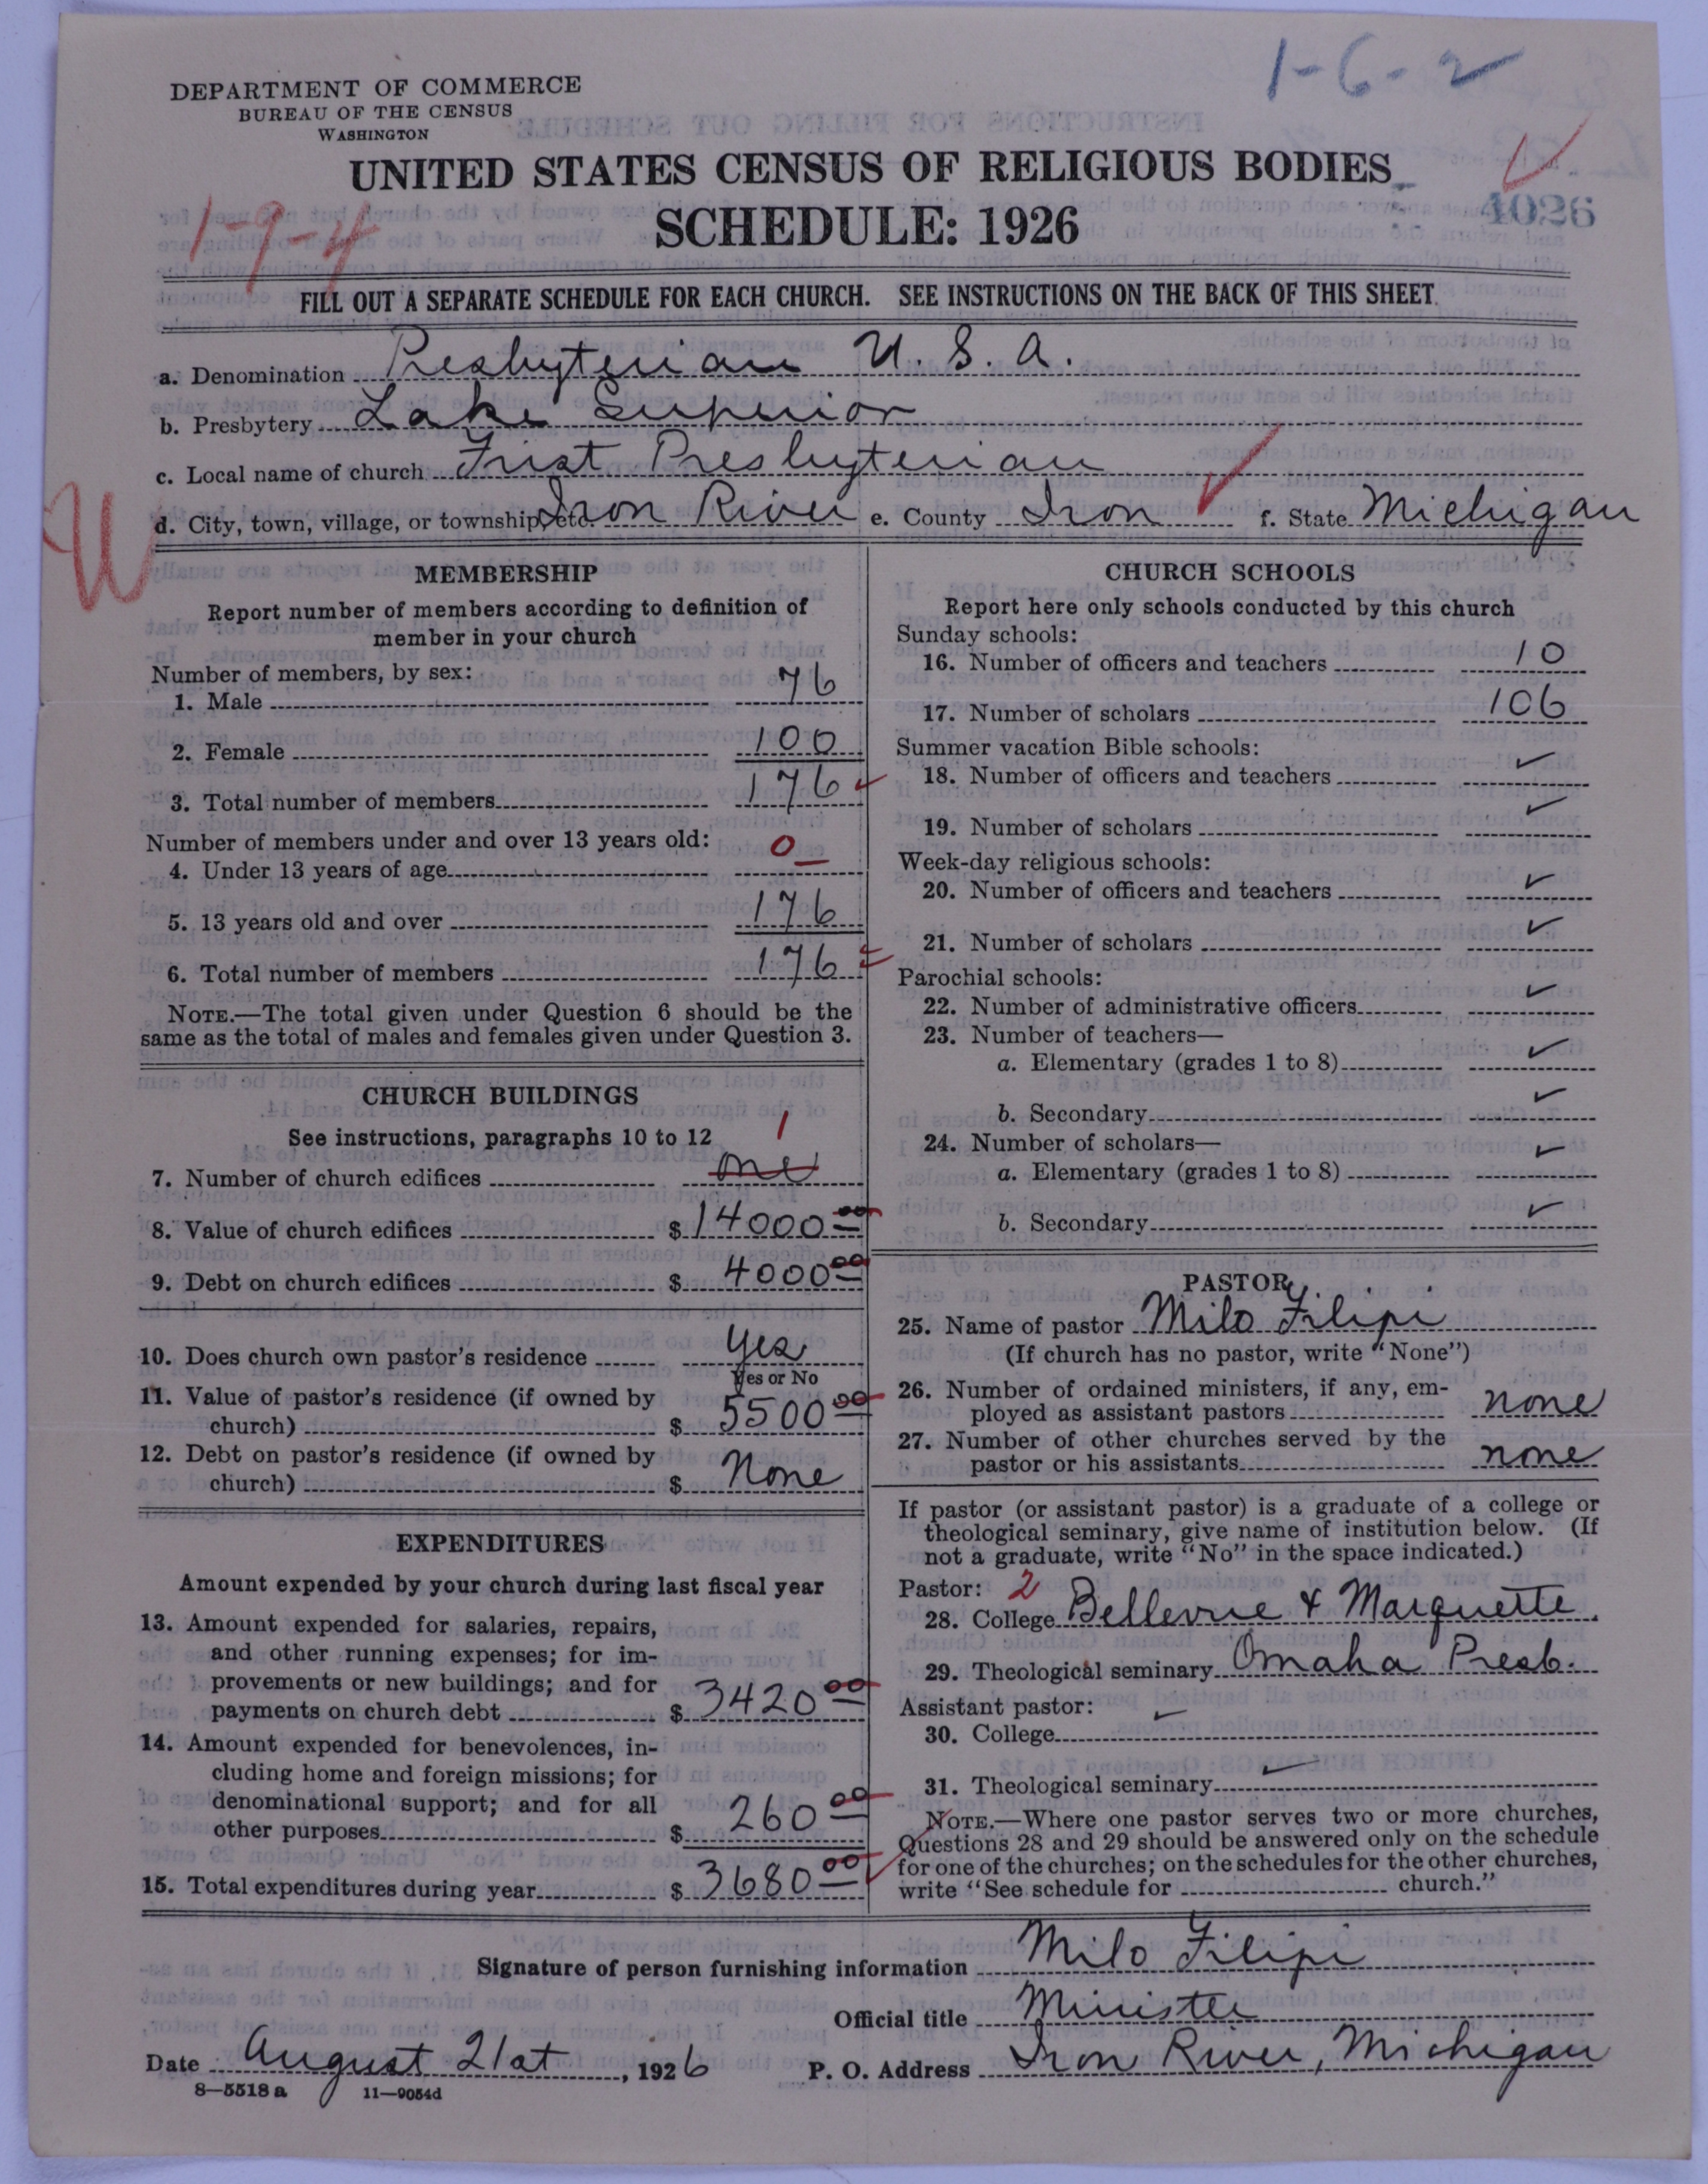 1-6-2
DEPARTMENT OF COMMERCE
BUREAU OF THE CENSUS
WASHINGTON
UNITED STATES CENSUS OF RELIGIOUS BODIES
4026
1-9-4
SCHEDULE: 1926
FILL OUT A SEPARATE SCHEDULE FOR EACH CHURCH. SEE INSTRUCTIONS ON THE BACK OF THIS SHEET
a. Denomination Presbyterian U. S. A.
b. Presbytery Lake Superior
c. Local name of church First Presbyterian
d. City, town, village, or township, etc. Iron River e. County Iron f. State Michigan
W
MEMBERSHIP
Report number of members according to definition of
member in your church
Number of members, by sex:
1. Male 76
2. Female 100
3. Total number of members 176
Number of members under and over 13 years old:
4. Under 13 years of age 0
5. 13 years old and over 176
6. Total number of members 176
NOTE.—The total given under Question 6 should be the
same as the total of males and females given under Question 3.
CHURCH BUILDINGS
See instructions, paragraphs 10 to 12
1
7. Number of church edifices one
8. Value of church edifices $ 14000 00
9. Debt on church edifices $ 4000 00
10. Does church own pastor's residence Yes
Yes or No
11. Value of pastor's residence (if owned by
church) $ 5500 00
12. Debt on pastor's residence (if owned by
church) $ None
EXPENDITURES
Amount expended by your church during last fiscal year
13. Amount expended for salaries, repairs,
and other running expenses; for im-
provements or new buildings; and for
payments on church debt $ 3420 00
14. Amount expended for benevolences, in-
cluding home and foreign missions; for
denominational support; and for all
other purposes $ 260 00
15. Total expenditures during year $ 3680 00
CHURCH SCHOOLS
Report here only schools conducted by this church
Sunday schools:
16. Number of officers and teachers 10
17. Number of scholars 106
Summer vacation Bible schools:
18. Number of officers and teachers ✓
19. Number of scholars ✓
Week-day religious schools:
20. Number of officers and teachers ✓
21. Number of scholars ✓
Parochial schools:
22. Number of administrative officers ✓
23. Number of teachers—
a. Elementary (grades 1 to 8) ✓
b. Secondary ✓
24. Number of scholars—
a. Elementary (grades 1 to 8) ✓
b. Secondary ✓
PASTOR
25. Name of pastor Milo Filipi
(If church has no pastor, write "None")
26. Number of ordained ministers, if any, em-
ployed as assistant pastors none
27. Number of other churches served by the
pastor or his assistants none
If pastor (or assistant pastor) is a graduate of a college or
theological seminary, give name of institution below. (If
not a graduate, write "No" in the space indicated.)
Pastor: 2
28. College Bellevue & Marquette
29. Theological seminary Omaha Presb.
Assistant pastor:
30. College ✓
31. Theological seminary ✓
NOTE.—Where one pastor serves two or more churches,
Questions 28 and 29 should be answered only on the schedule
for one of the churches; on the schedules for the other churches,
write "See schedule for church."
Signature of person furnishing information Milo Filipi
Official title Minister
Date August 21st, 1926 P. O. Address Iron River, Michigan
8—5518 a 11—9054d